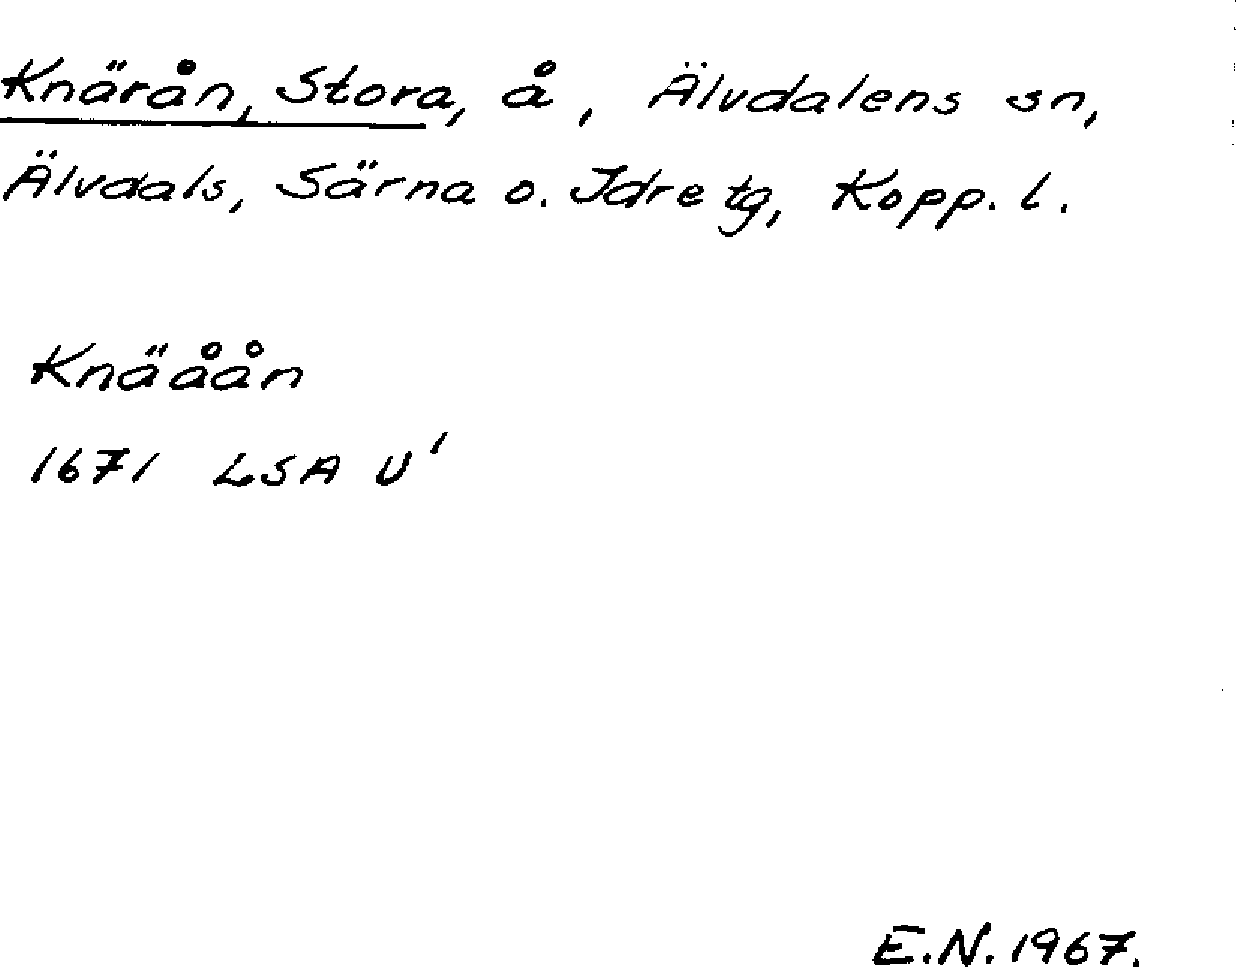 Knärån, Stora, å, Älvdalens sn,
Älvdals, Särna o. Idre tg, Kopp. l.
Knäåån
1671 LSA U'
E.N. 1967.